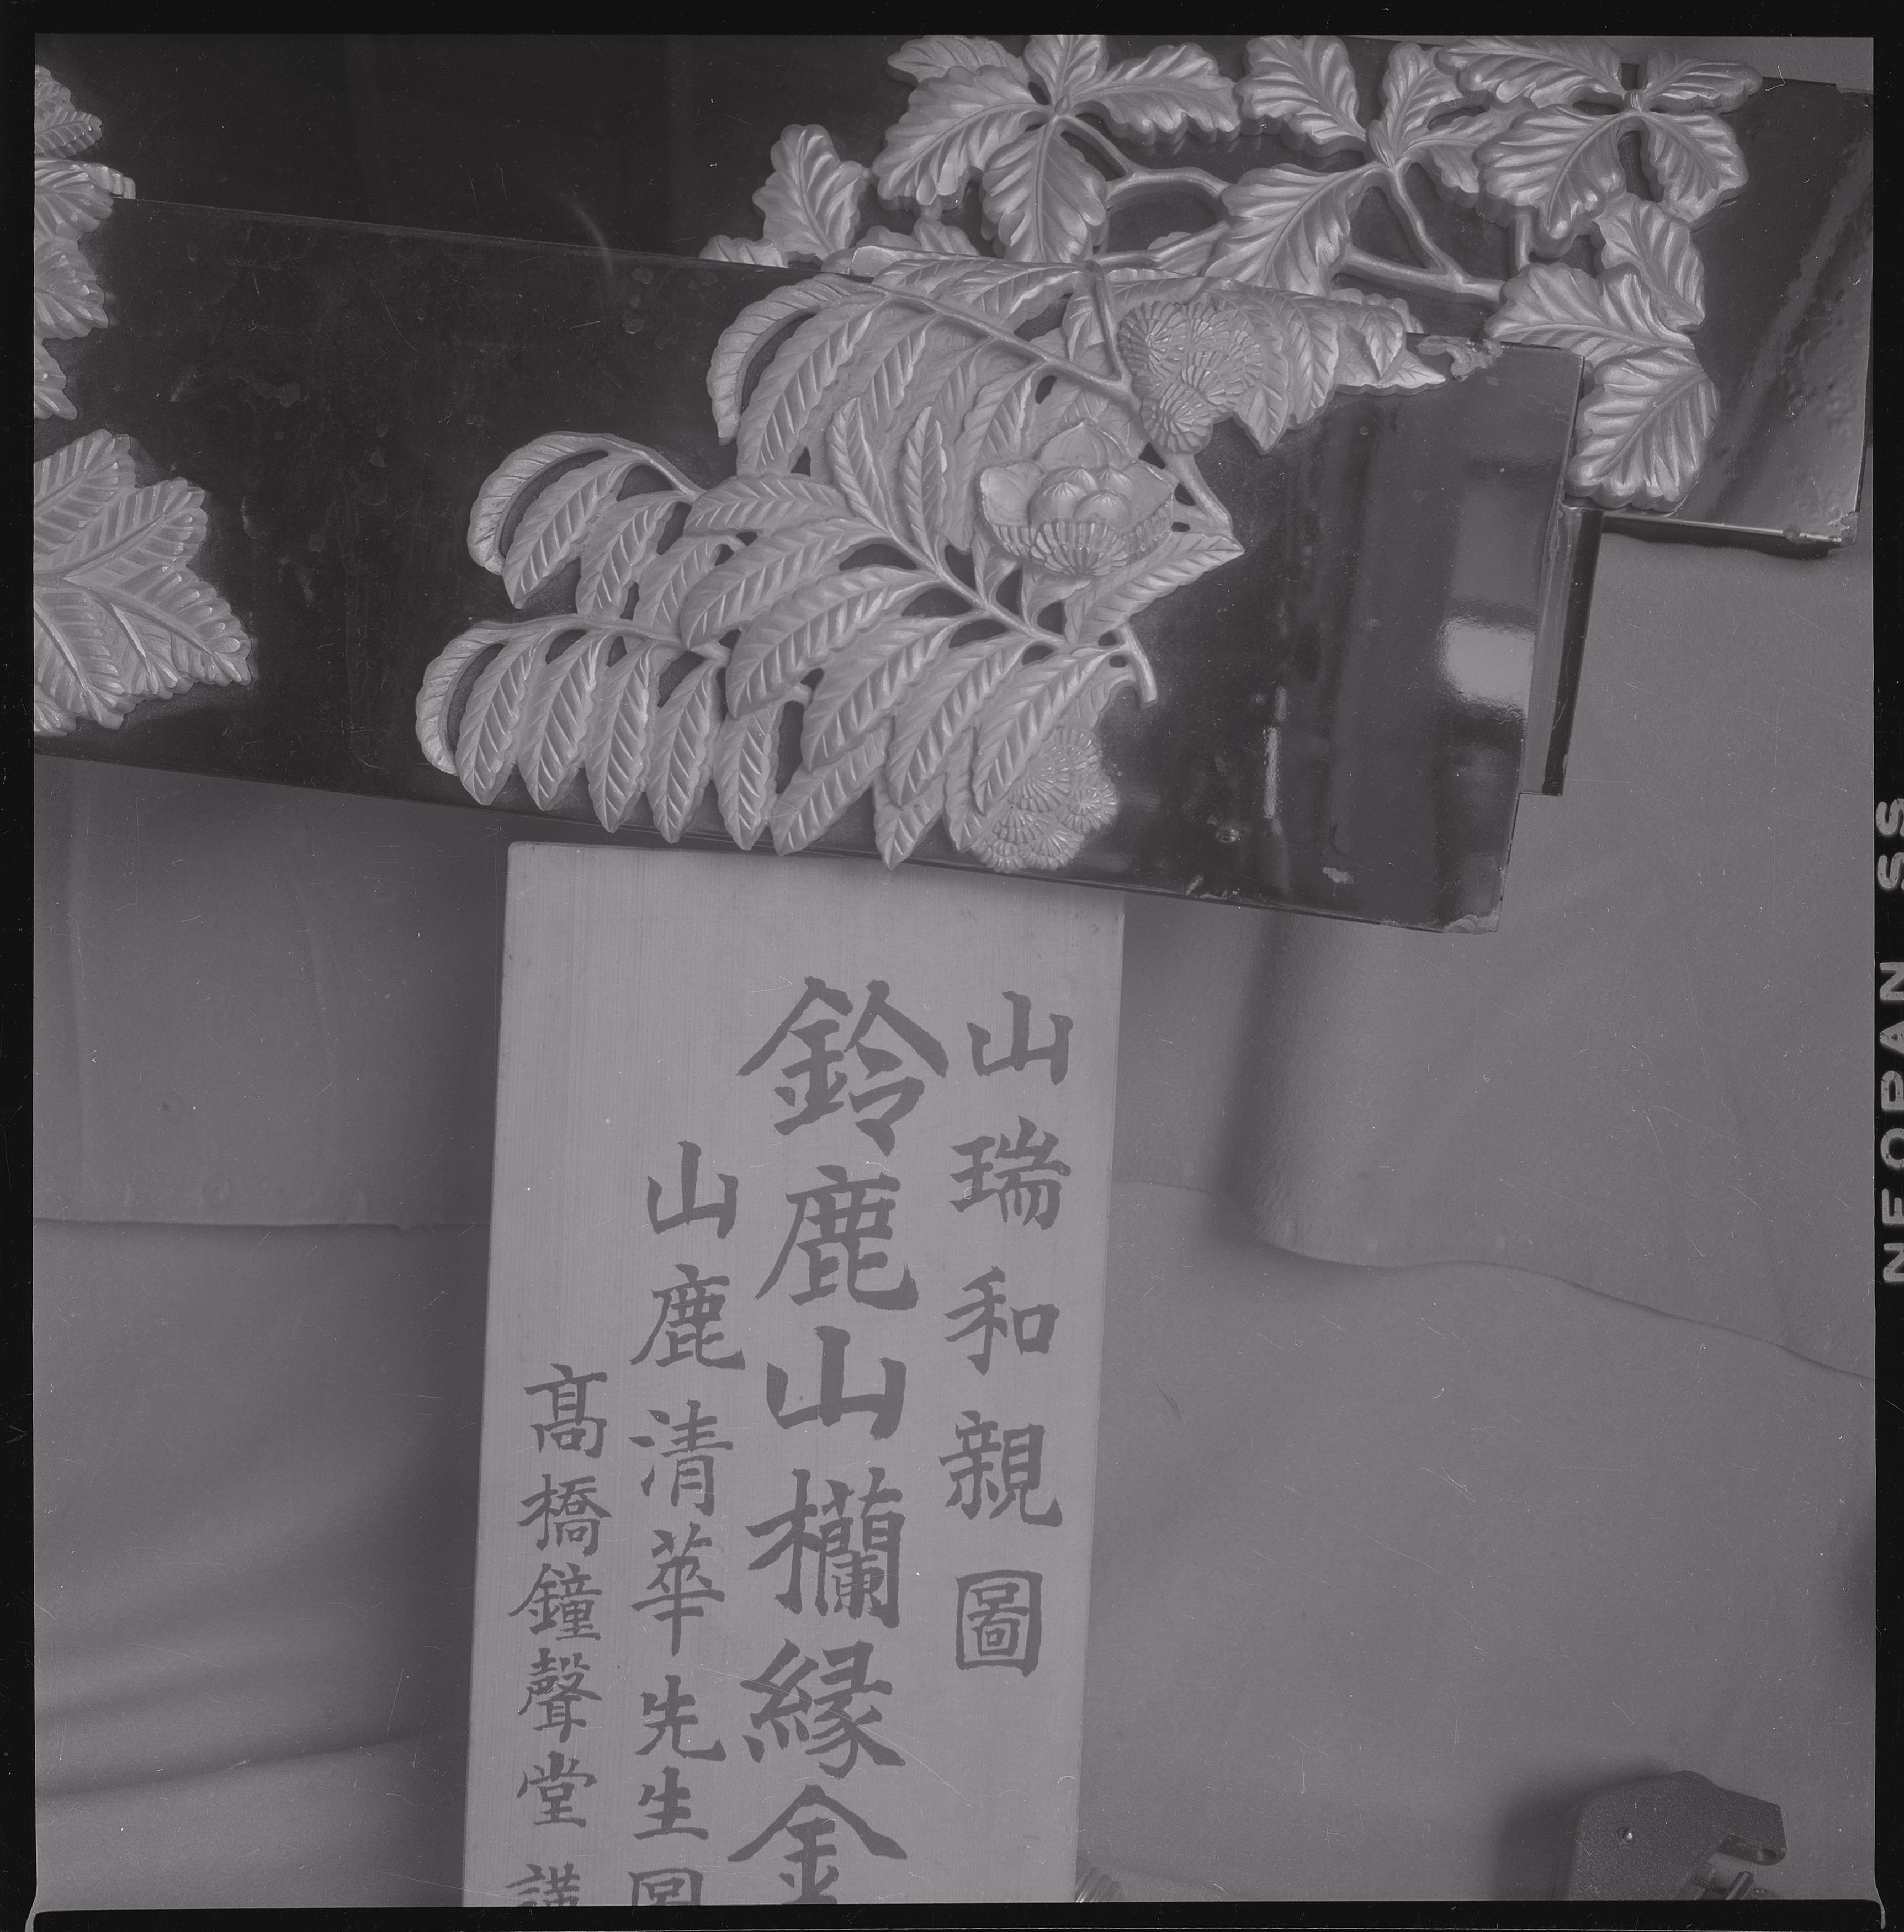 山瑞和親圖
鈴鹿山欄縁金
山鹿清華先生図
高橋鐘聲堂謹
NEOPAN SS